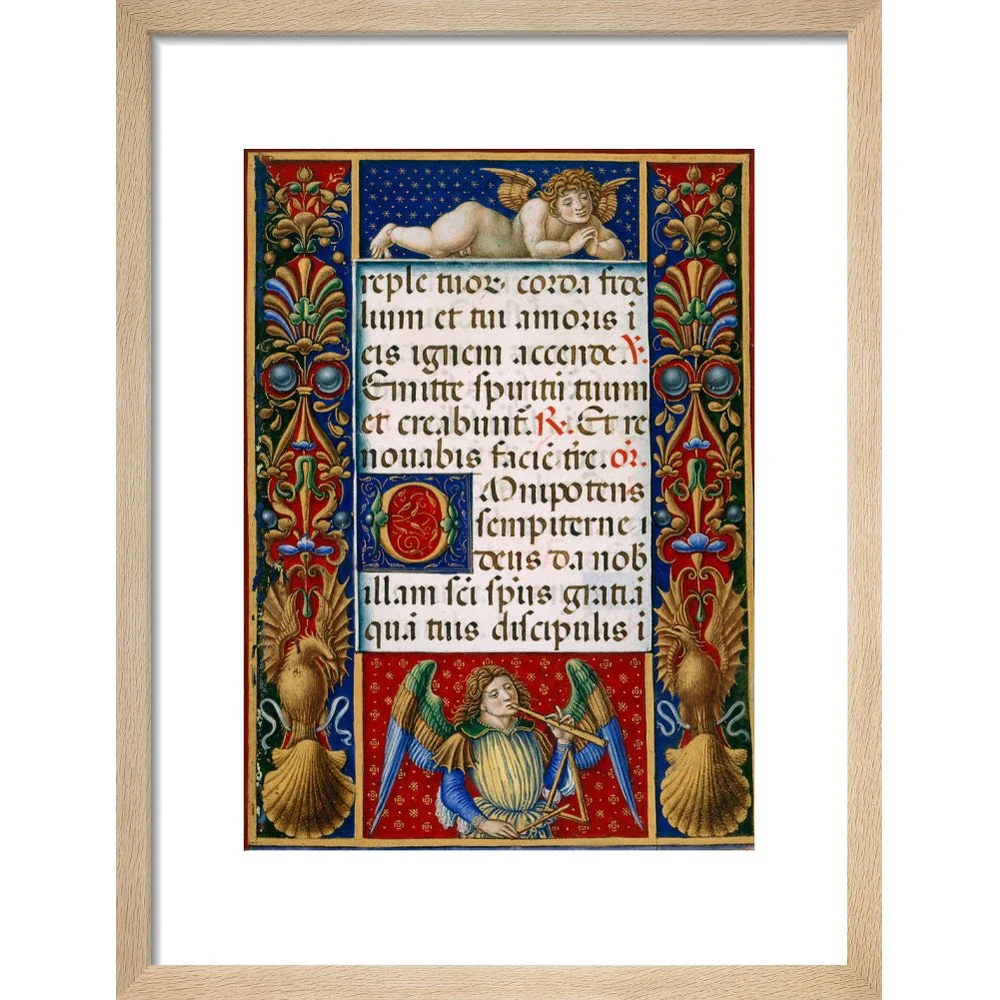 reple tuor corda fide
lium et tui amoris i
eis ignem accende. V.
Emitte spiritū tuum
et creabunt̄. R. Et re
nouabis faciē tr̄e. or̄.
OMnipotens
sempiterne
deus da nob
illam sc̄i sp̄us gratiā
quā tuis discipulis i